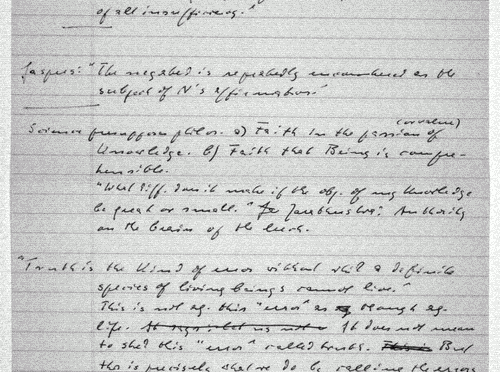 of all insufficiency."
Jaspers: "The negated is repeatedly encountered as the
subject of N's affirmations."
(or value)
Science presupposes philos. a) Faith in the passion of
Knowledge. b) Faith that Being is compre-
hensible.
"What diff. does it make if the obj. of my Knowledge
be great or small." Zarathustra: Authority
on the brain of the leech.
"Truth is the kind of error without which a definite
species of living beings cannot live."
This is not ag. this "error" as though ag.
life. It does not mean
to shed this "error" called truth. But
this is precisely what we do by calling the error